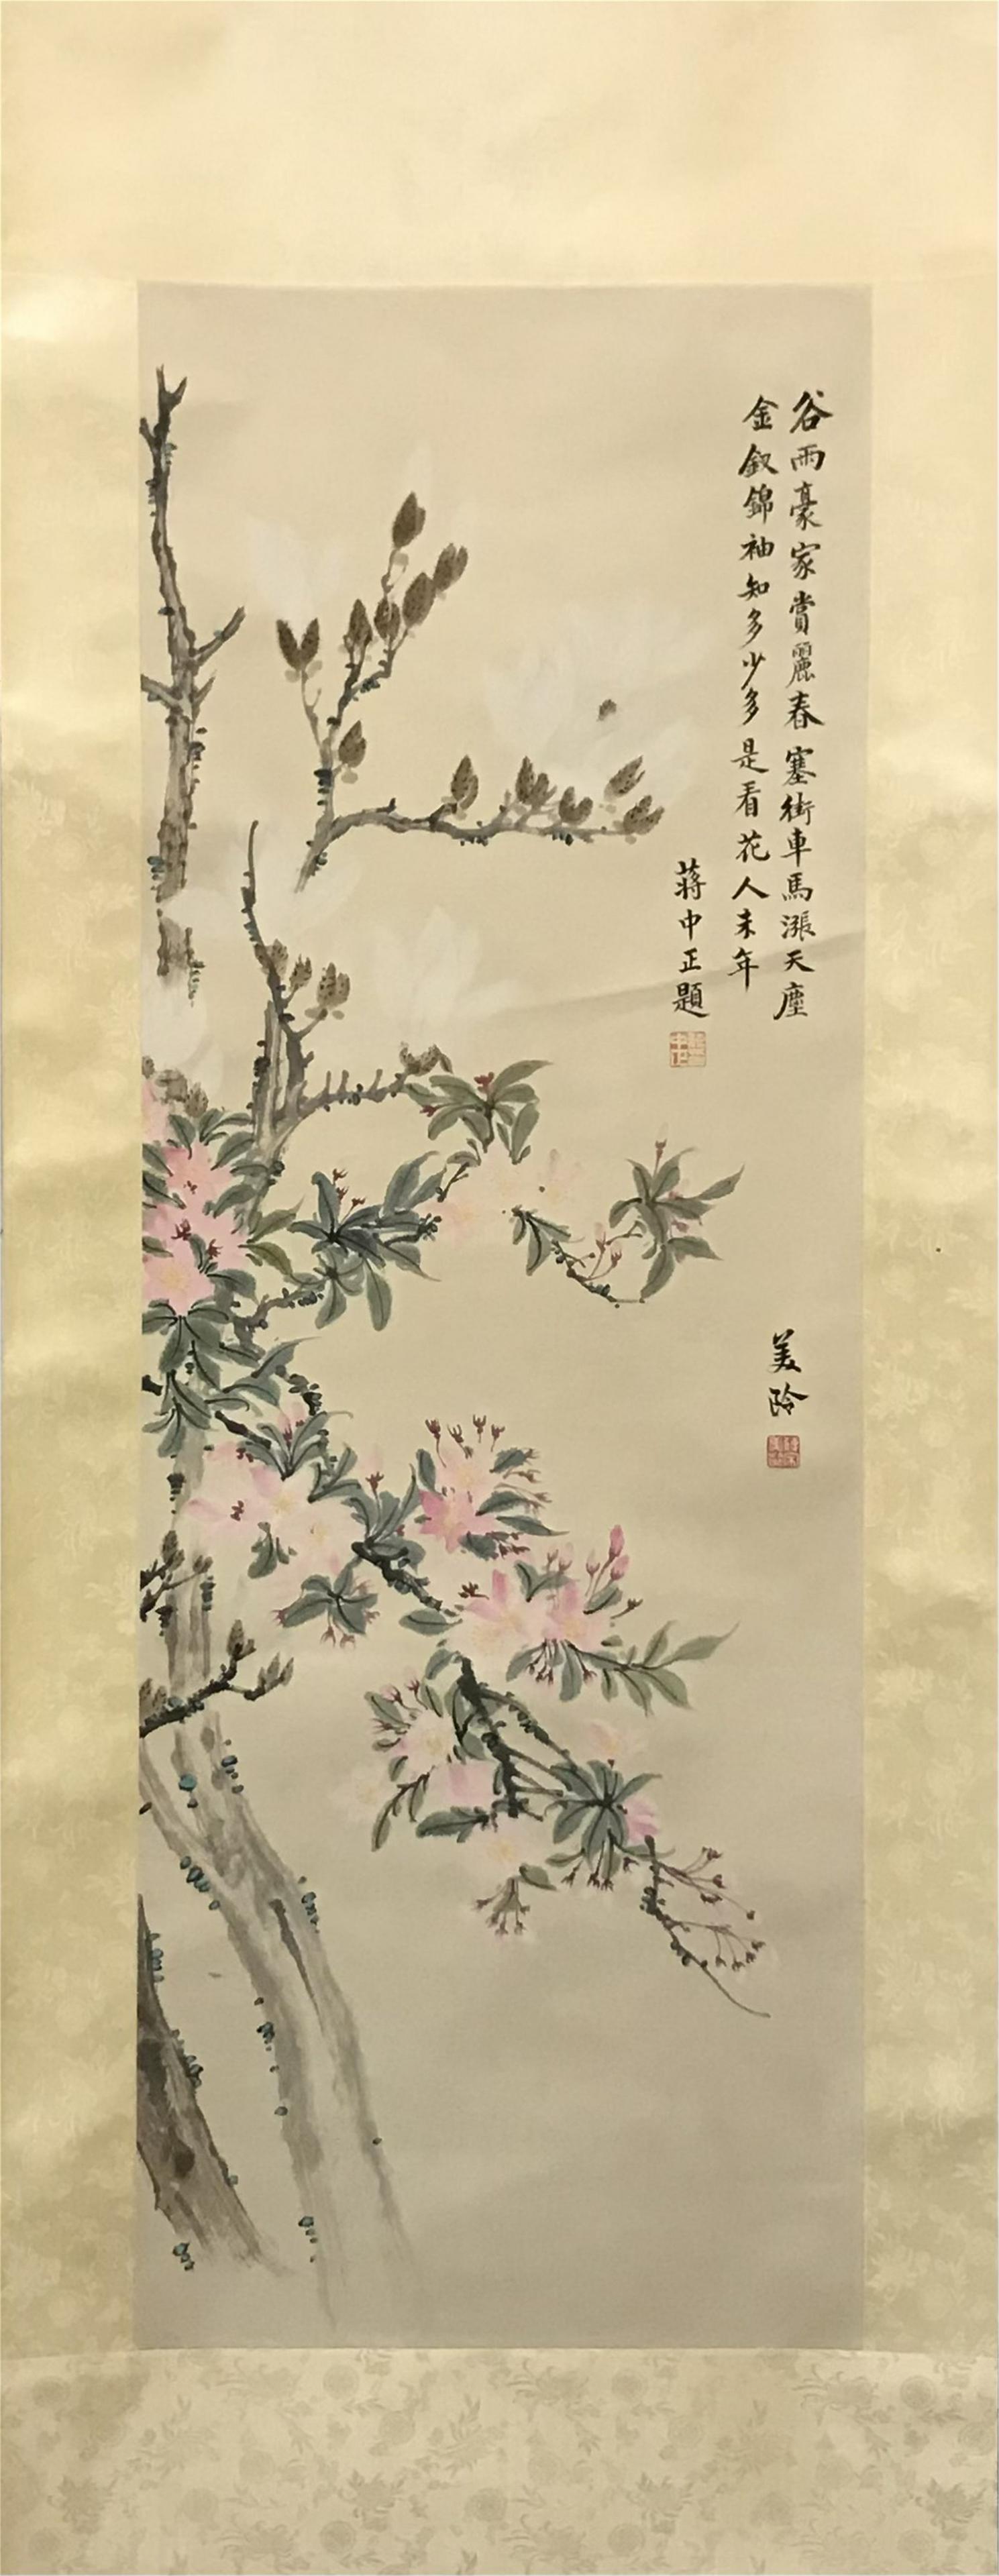 谷雨豪家賞麗春塞街車馬漲天塵
金釵錦袖知多少多是看花人未年
蔣中正題
中正
美齡